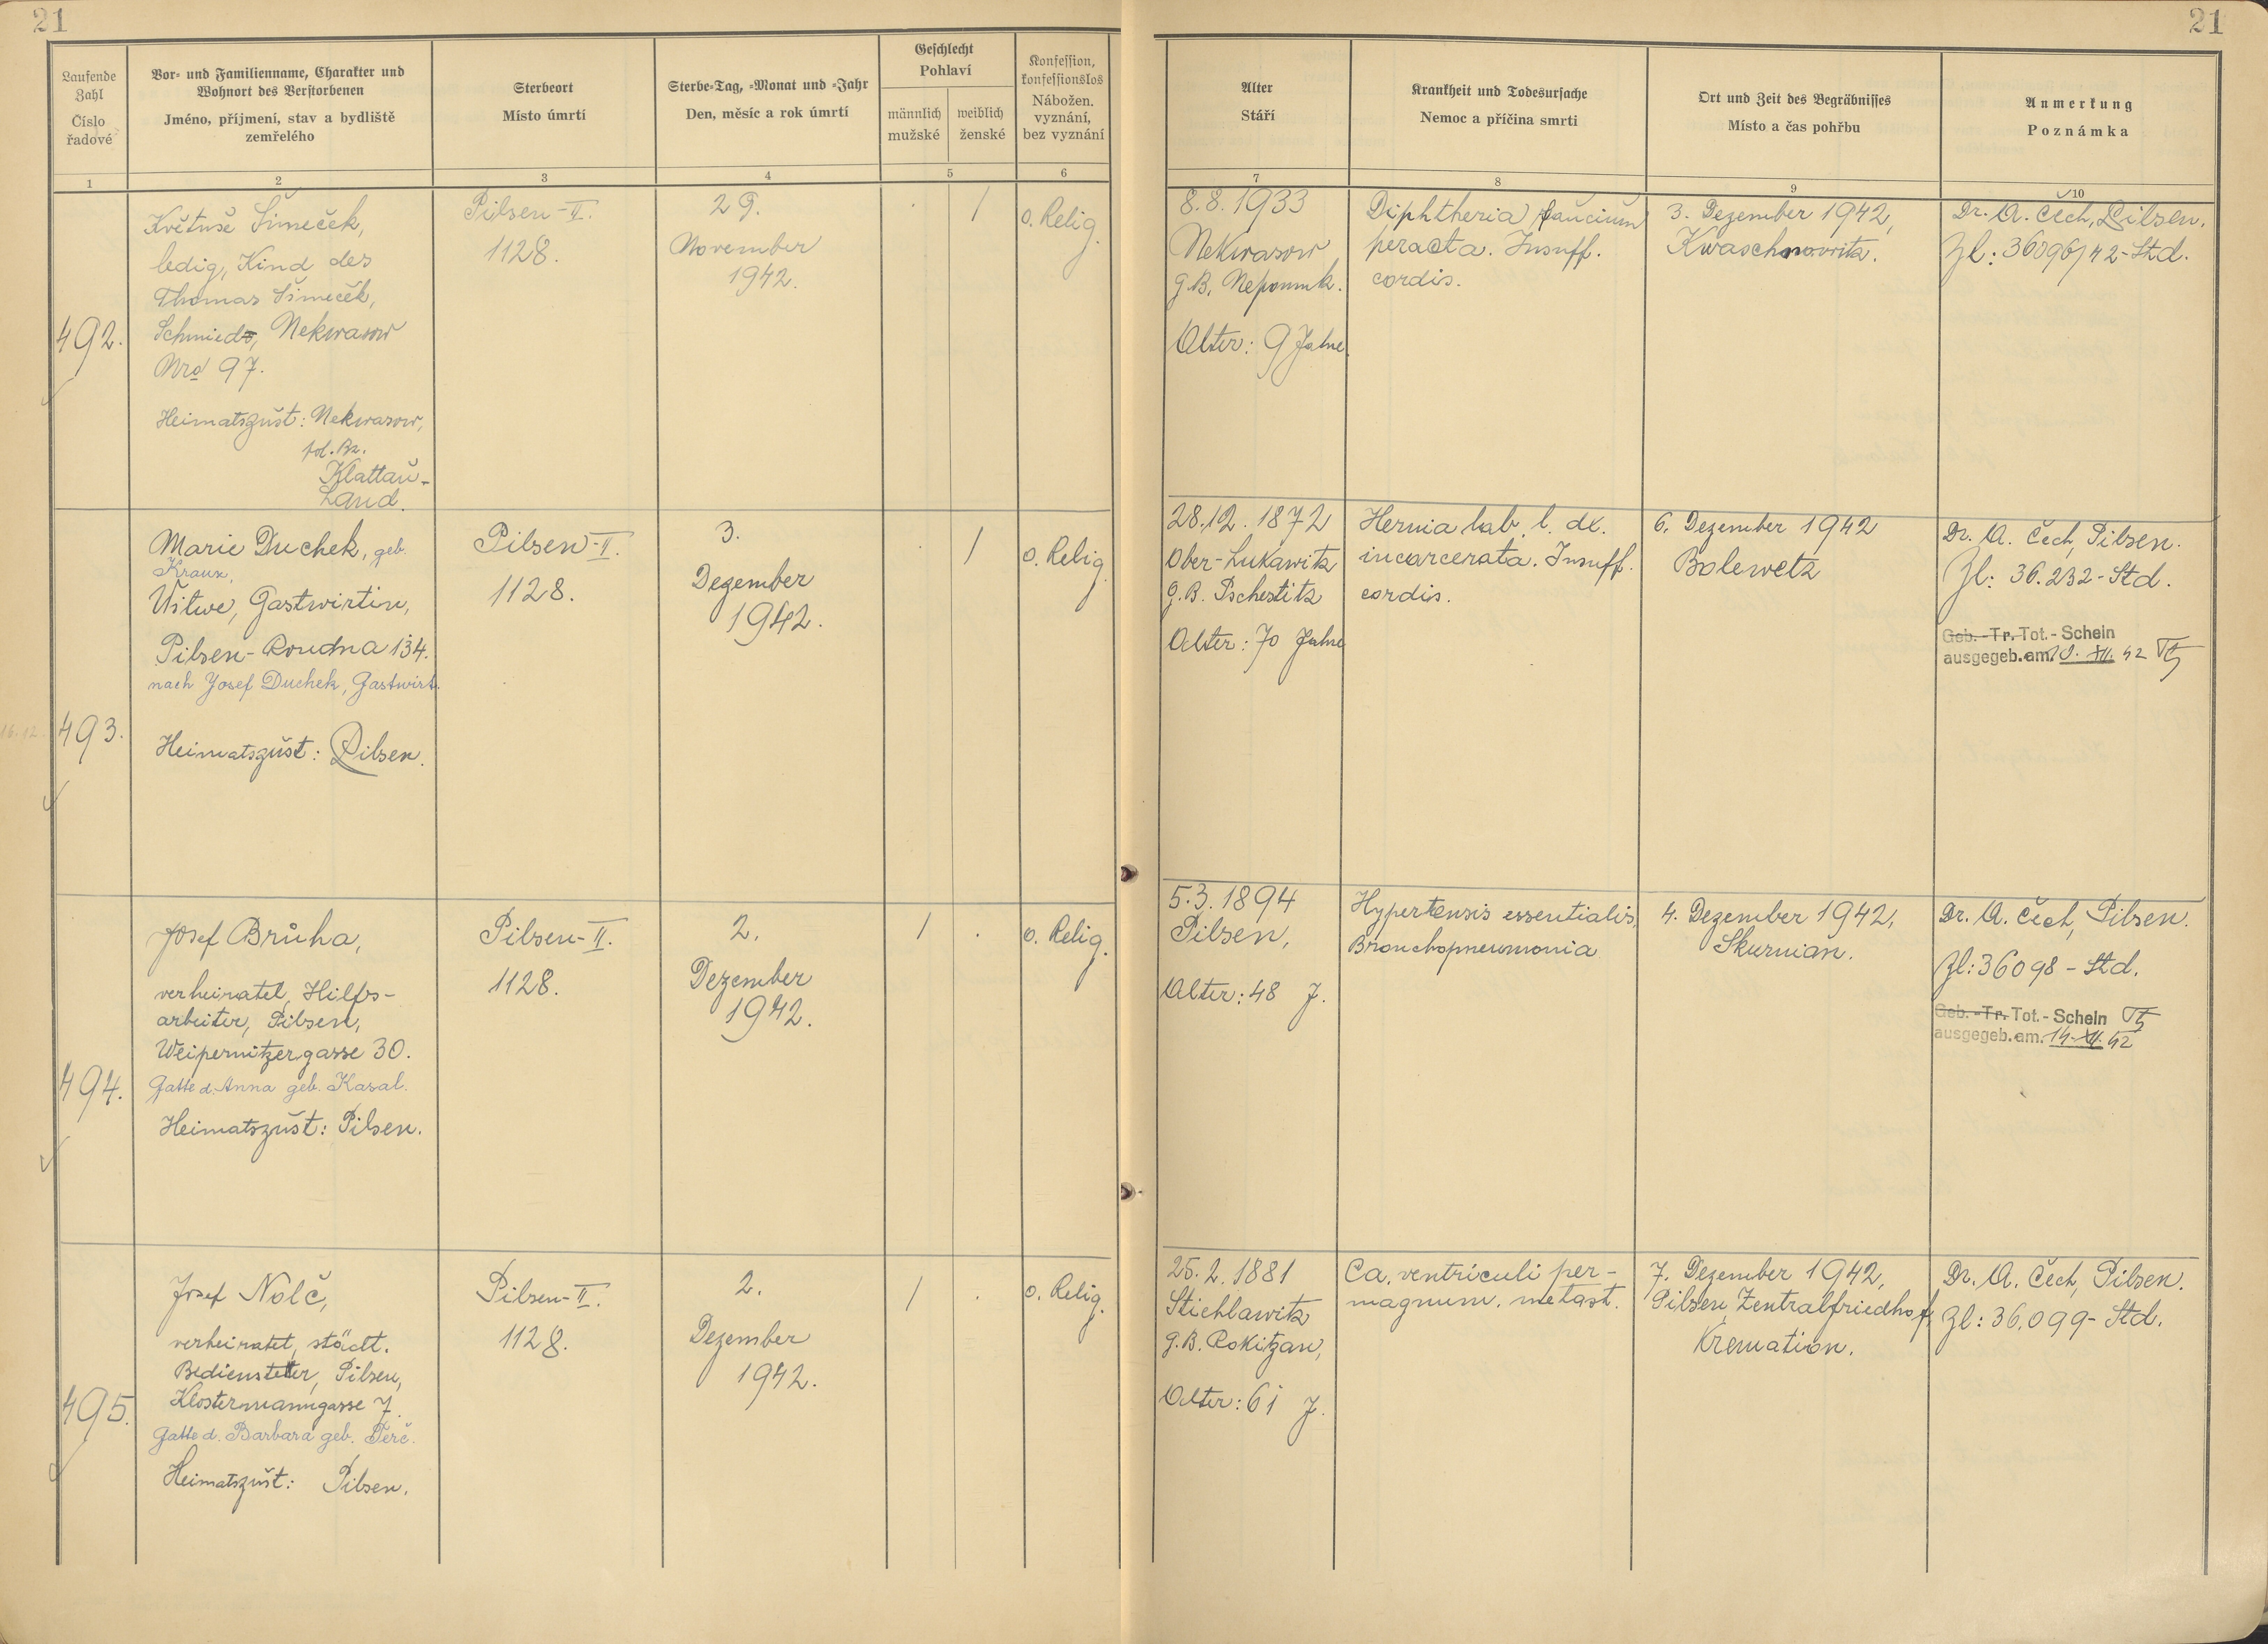 21
21
Laufende
Zahl
Číslo
řadové
Vor- und Familienname, Charakter und
Wohnort des Verstorbenen
Jméno, příjmení, stav a bydliště
zemřelého
Sterbeort
Místo úmrtí
Sterbe-Tag, -Monat und -Jahr
Den, měsíc a rok úmrtí
Geschlecht
Pohlaví
männlich
mužské
weiblich
ženské
Konfession,
konfessionslos
Nábožen.
vyznání,
bez vyznání
Alter
Stáří
Krankheit und Todesursache
Nemoc a příčina smrti
Ort und Zeit des Begräbnisses
Místo a čas pohřbu
Anmerkung
Poznámka
1
2
3
4
5
6
7
8
9
10
492.
Květuše Šimeček,
ledig, Kind des
Thomas Šimeček,
Schmieds, Nekwasow
Nro 97.
Heimatszust: Nekwasow,
pol. Bz.
Klattau-
Land.
Pilsen-II.
1128.
29.
November
1942.
/
o. Relig.
8.8.1933
Nekwasow
G.B. Nepomuk.
Alter: 9 Jahre
Diphtheria faucium
peracta. Insuff.
cordis.
3. Dezember 1942,
Kwaschnowitz.
Dr. A. Čech, Pilsen.
Zl: 36096/42-Std.
16.12.
493.
Marie Duchek, geb.
Kraux,
Witwe, Gastwirtin,
Pilsen-Roudna 134.
nach Josef Duchek, Gastwirt.
Heimatszust: Pilsen.
Pilsen-II.
1128.
3.
Dezember
1942.
/
o. Relig.
28.12.1872
Ober-Lukawitz
G.B. Pschestitz
Alter: 70 Jahre
Hernia lab. l. dx.
incarcerata. Insuff.
cordis.
6. Dezember 1942
Bolewetz
Dr. A. Čech, Pilsen.
Zl: 36.232-Std.
Geb.-Tr. Tot.-Schein
ausgegeb. am 10. XII. 42
494.
Josef Brůha,
verheiratet, Hilfs-
arbeiter, Pilsen,
Weipernitzergasse 30.
Gatte d. Anna geb. Kasal.
Heimatszust: Pilsen.
Pilsen-II.
1128.
2.
Dezember
1942.
/
o. Relig.
5.3.1894
Pilsen,
Alter: 48 J.
Hypertensis essentialis,
Bronchopneumonia
4. Dezember 1942,
Skurnian.
Dr. A. Čech, Pilsen.
Zl: 36098-Std.
Geb.-Tr. Tot.-Schein
ausgegeb. am 14. XII. 42
495.
Josef Nolč,
verheiratet, städt.
Bediensteter, Pilsen,
Klostermanngasse 7.
Gatte d. Barbara geb. Terč.
Heimatszust: Pilsen.
Pilsen-II.
1128.
2.
Dezember
1942.
/
o. Relig.
25.2.1881
Stichlawitz
G.B. Rokitzan,
Alter: 61 J.
Ca. ventriculi per-
magnum. metast.
7. Dezember 1942,
Pilsen, Zentralfriedhof,
Kremation.
Dr. A. Čech, Pilsen.
Zl: 36.099-Std.